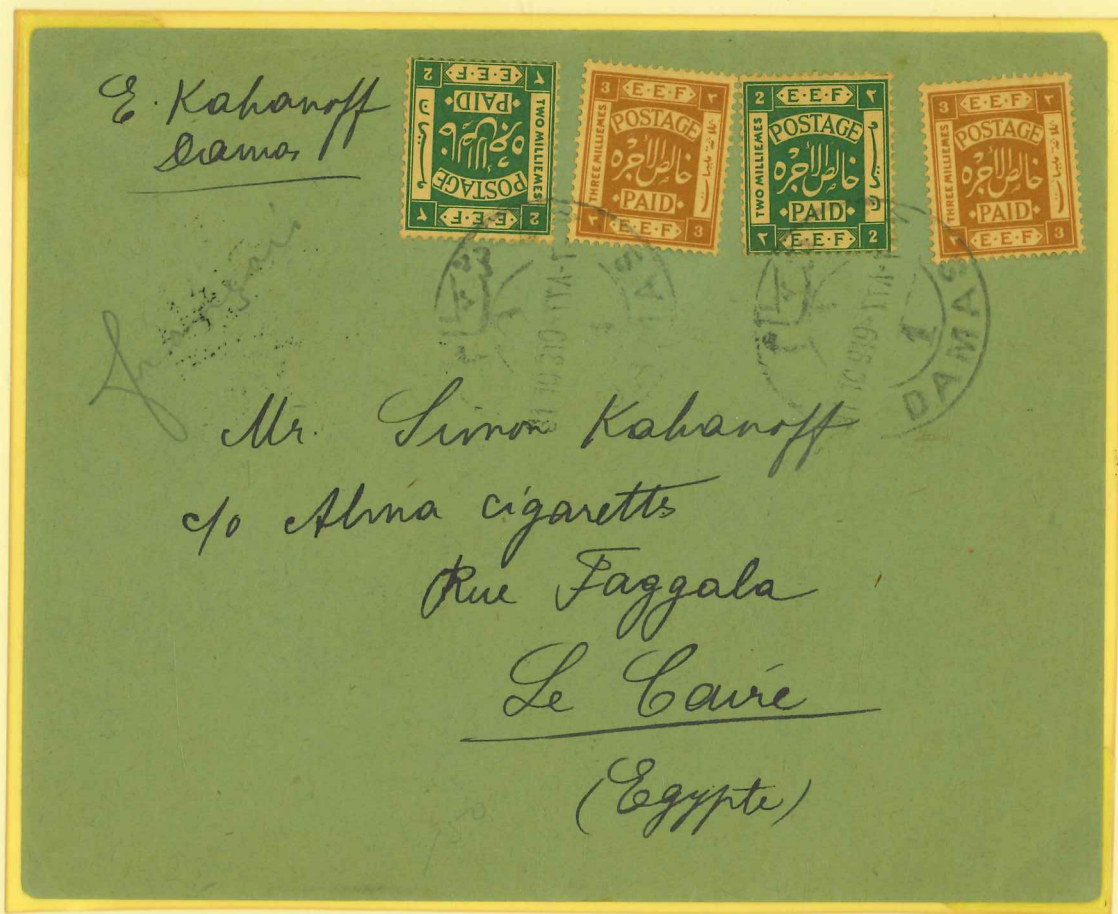 E. Kahanoff
Damas
2 E·E·F ٢
POSTAGE
خالص الاجره
PAID
TWO MILLIEMES
٢ E·E·F 2
3 E·E·F ٣
POSTAGE
خالص الاجره
PAID
THREE MILLIEMES
٣ E·E·F 3
2 E·E·F ٢
POSTAGE
خالص الاجره
PAID
TWO MILLIEMES
٢ E·E·F 2
3 E·E·F ٣
POSTAGE
خالص الاجره
PAID
THREE MILLIEMES
٣ E·E·F 3
DAMAS
1
Mr. Simon Kahanoff
c/o Alma cigaretts
Rue Faggala
Le Caire
(Egypte)